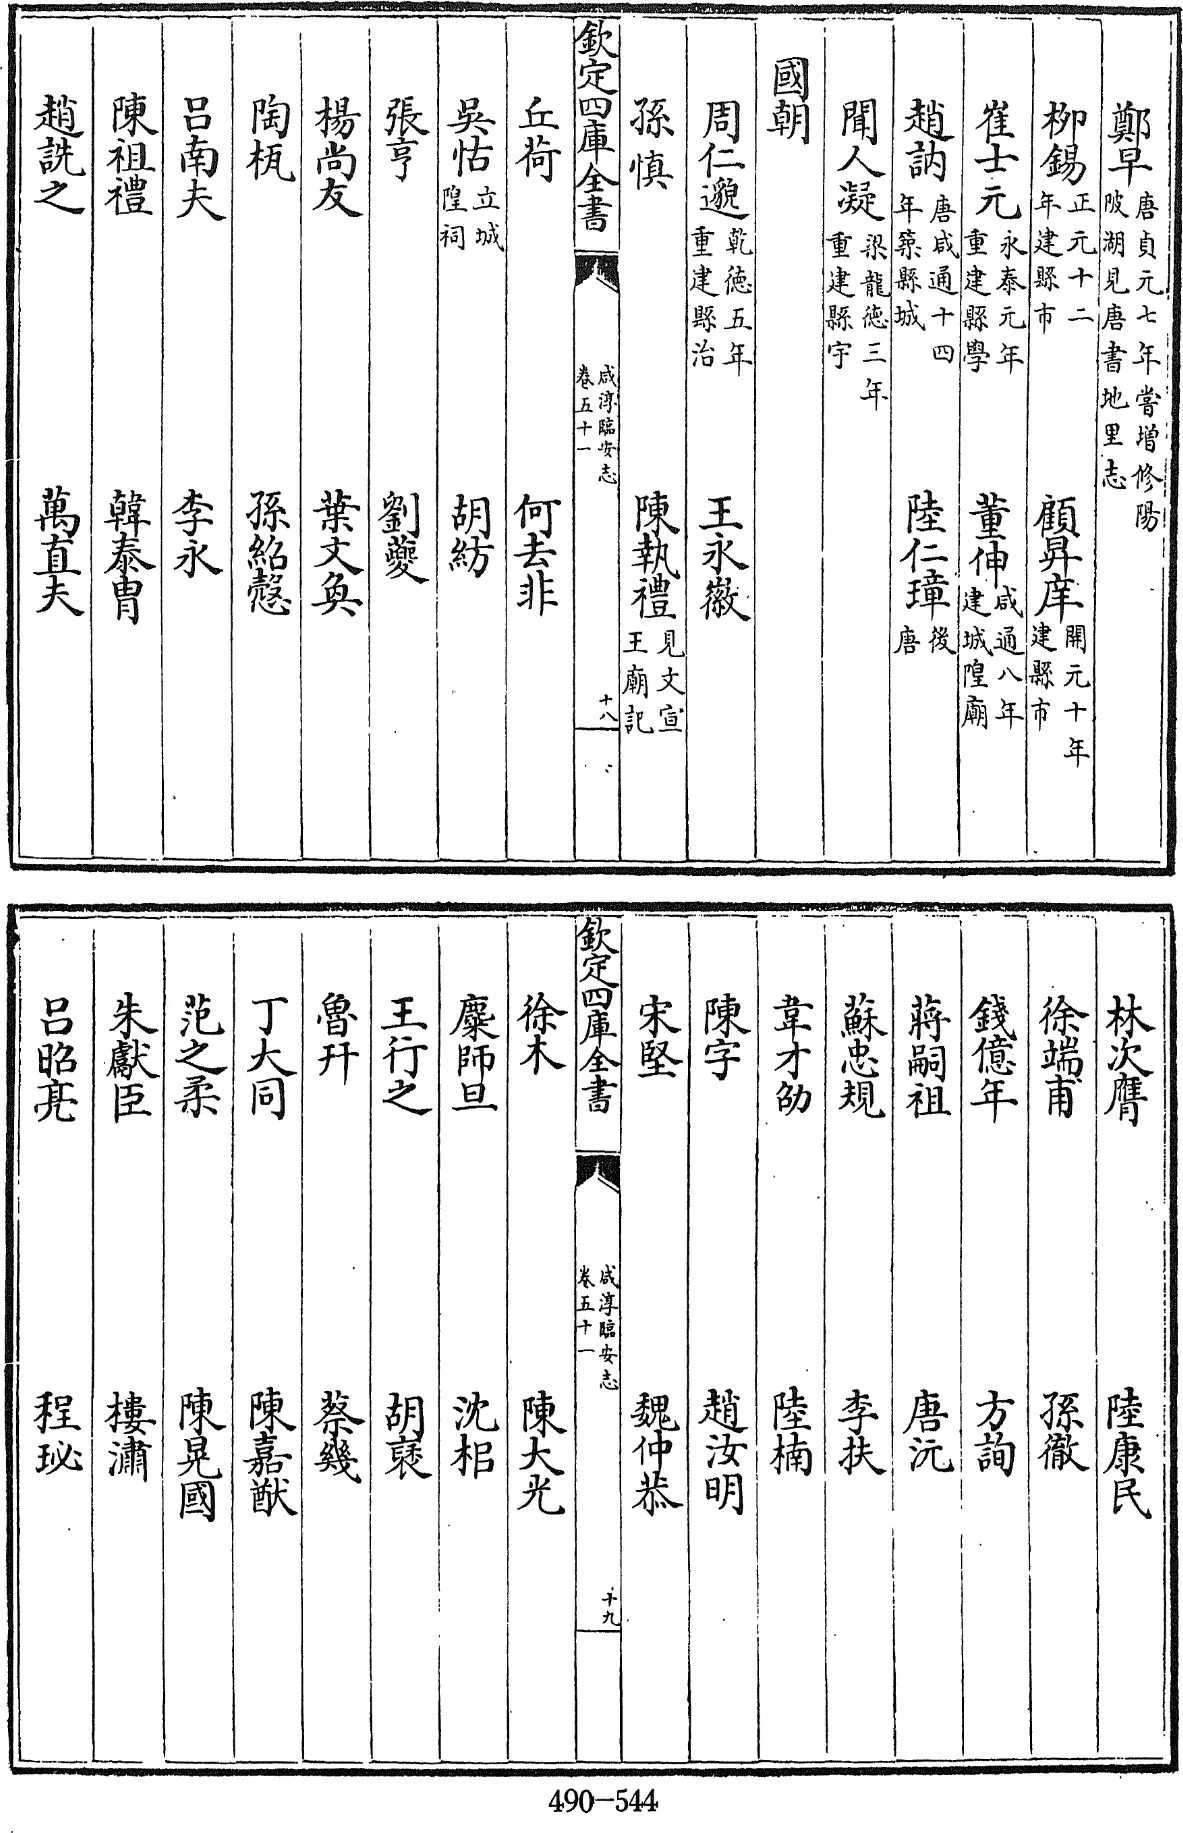 鄭早唐貞元七年嘗增修陽陂湖見唐書地里志
柳錫正元十二年建縣市 顧昇庠開元十年建縣市
崔士元永泰元年重建縣學 董伸咸通八年建城隍廟
趙訥唐咸通十四年築縣城 陸仁璋後唐
聞人凝梁龍德三年重建縣宇
國朝
周仁邈乾德五年重建縣治 王永徽
孫慎 陳執禮見文宣王廟記
欽定四庫全書 咸淳臨安志卷五十一 十八
丘荷 何去非
吳怙立城隍祠 胡紡
張亨 劉夔
楊尚友 葉文奐
陶梲 孫紹愨
呂南夫 李永
陳祖禮 韓泰胄
趙詵之 萬直夫
林次膺 陸康民
徐端甫 孫徹
錢億年 方詢
蔣嗣祖 唐沅
蘇忠規 李扶
韋才劭 陸楠
陳字 趙汝明
宋堅 魏仲恭
欽定四庫全書 咸淳臨安志卷五十一 十九
徐木 陳大光
麋師旦 沈柖
王行之 胡襃
魯幵 蔡幾
丁大同 陳嘉猷
范之柔 陳晃國
朱獻臣 樓潚
呂昭亮 程珌
490-544